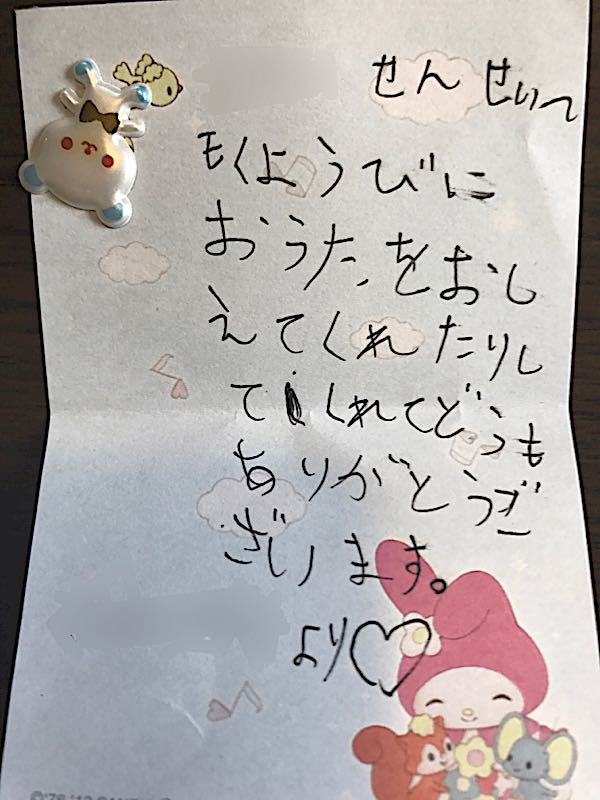 せんせいへ
もくようびに
おうた、をおし
えてくれたりし
てくれてどうも
ありがとうご
ざいます。
より♡